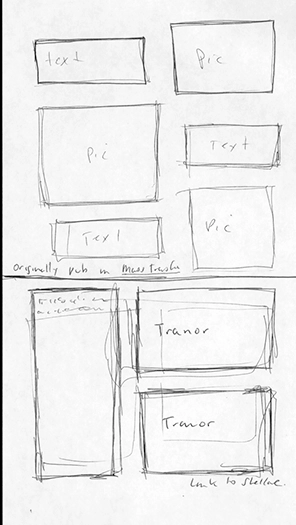 text
Pic
Pic
Text
Text
Pic
Originally pub in Mass Transfer
Tranor
Tranor
Link to